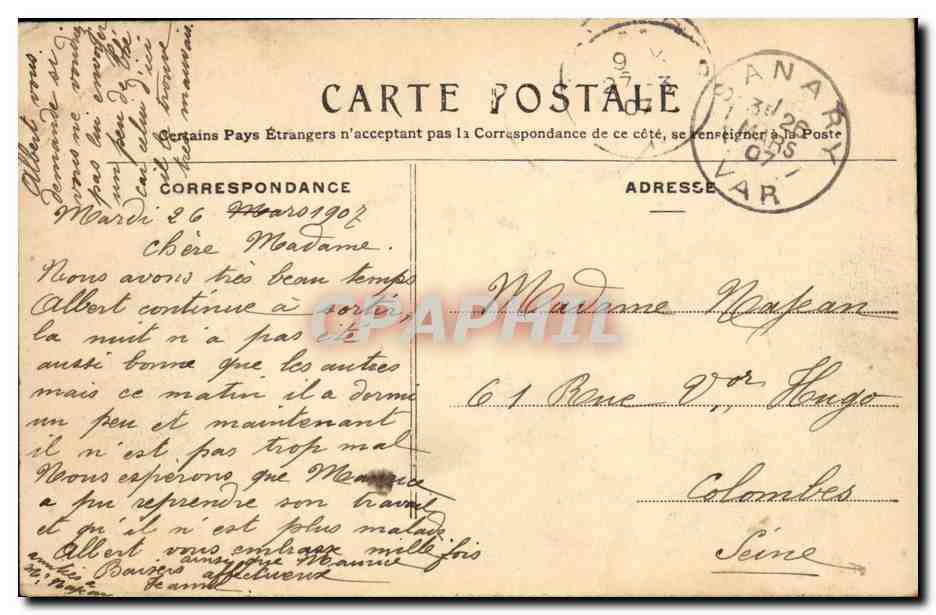 CARTE POSTALE
Certains Pays Étrangers n'acceptant pas la Correspondance de ce côté, se renseigner à la Poste
CORRESPONDANCE
ADRESSE
Albert vous
demande si
vous ne voudriez
pas lui envoyer
un peu de thé
car celui d'ici
il le trouve
très mauvais
Mardi 26 Mars 1907
chère Madame.
Nous avons très beau temps
Albert continue à sortir,
la nuit n'a pas été
aussi bonne que les autres
mais ce matin il a dormi
un peu et maintenant
il n'est pas trop mal
Nous espérons que Maurice
a pu reprendre son travail
et qu'il n'est plus malade
Albert vous embrasse mille fois
ainsi que Maurice
Baisers affectueux
Jeanne
amitiés à
Mr Najean
Madame Najean
61 Rue Vor Hugo
Colombes
Seine
SANARY
26
MARS
07
VAR
9
27 3
07
CPAPHIL